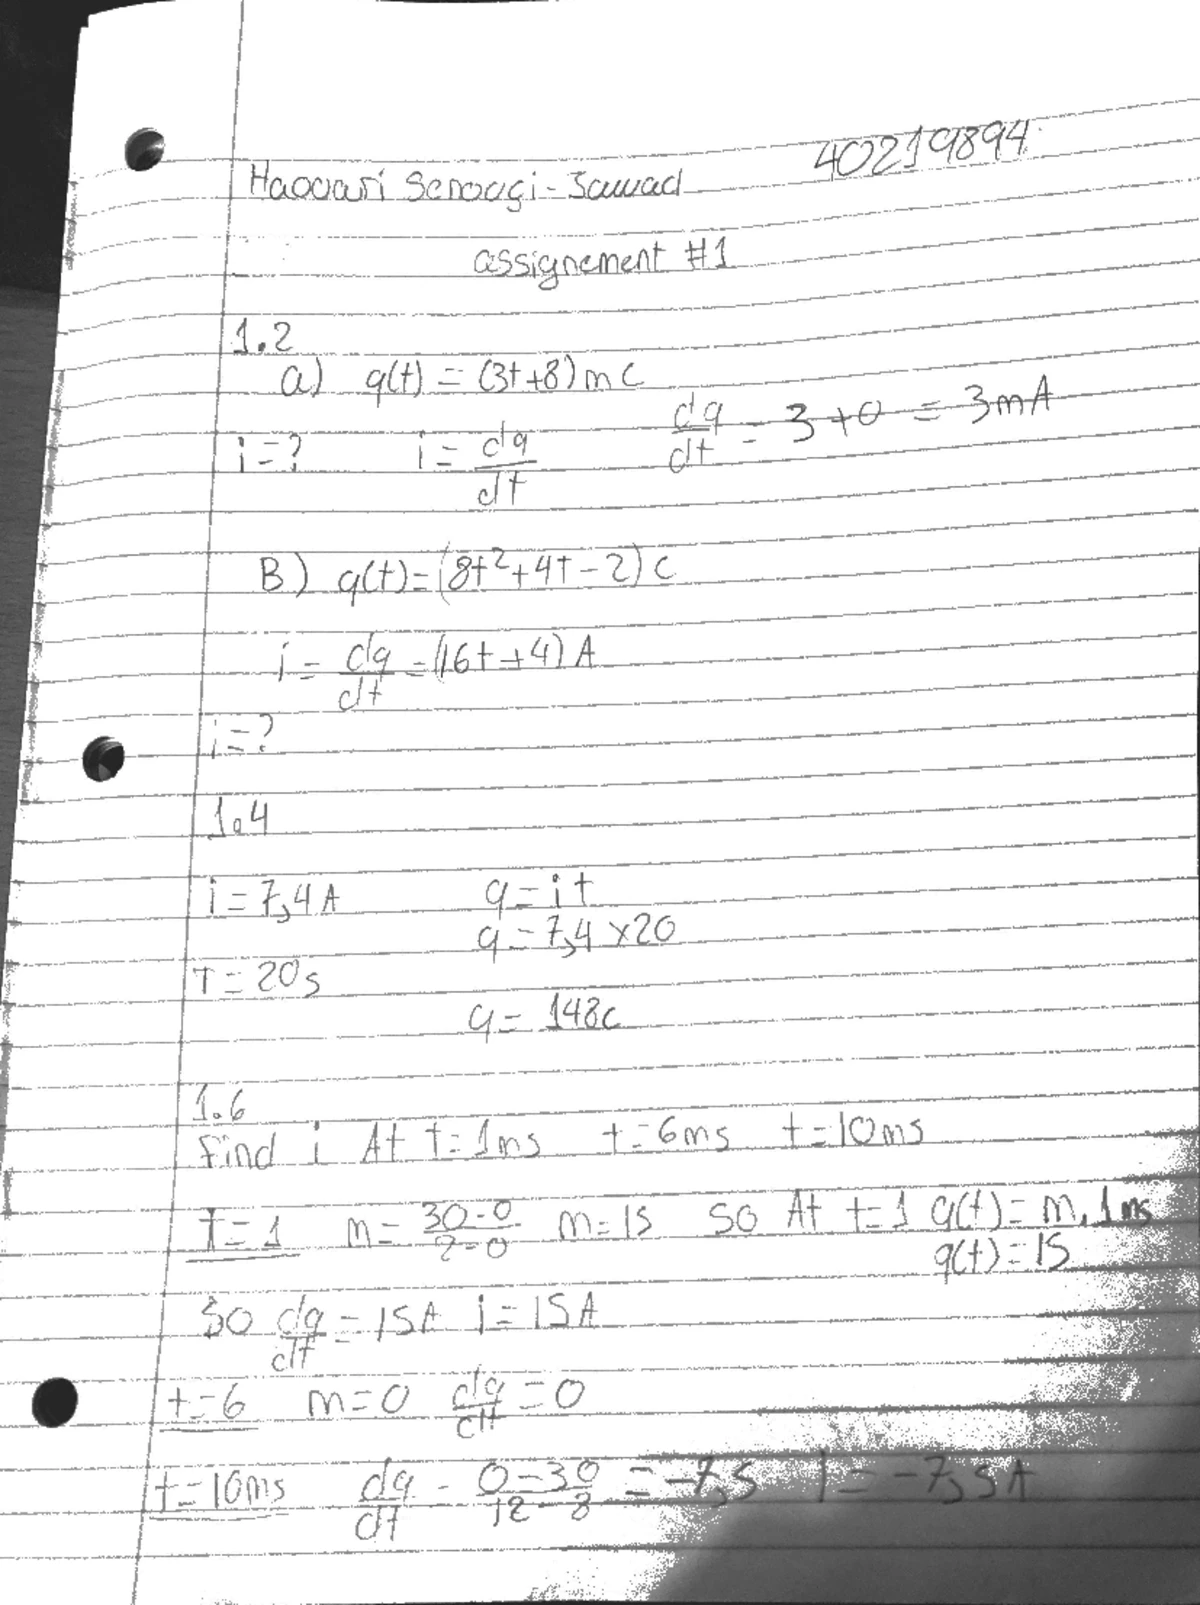 40219894
Haouari Senougi-Jawad
assignement #1
1.2
a) q(t) = (3t+8)mC
i=? i = dq/dt dq/dt = 3+0 = 3mA
B) q(t)=(8t²+4t-2)C
i = dq/dt = (16t+4)A
i=?
1.4
i=7,4A q=it
q=7,4×20
T=20s
q= 148c
1.6
Find i At t=1ms t=6ms t=10ms
t=1 m= 30-0/2-0 m=15 so At t=1 q(t)=m.1ms
q(t)=15
So dq/dt = 15A i=15A
t=6 m=0 dq/dt = 0
t=10ms dq/dt = 0-30/12-8 = -7,5 i=-7,5A